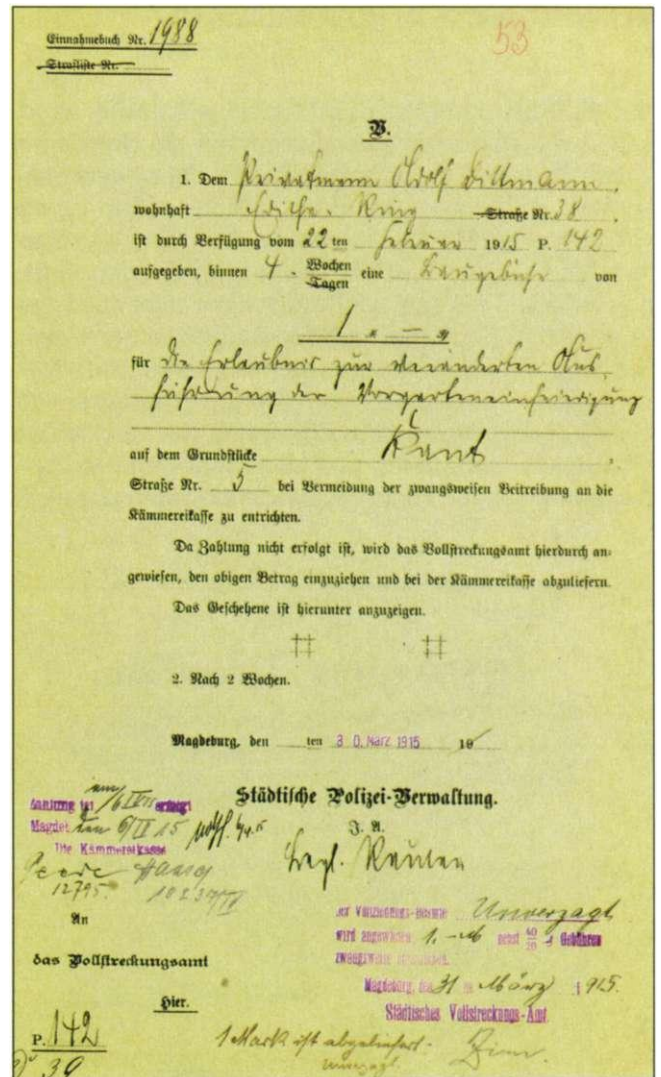 Einnahmebuch Nr. 1988
53
Strafliste Nr.
V.
1. Dem Privatmann Adolf Dittmann
wohnhaft Editha-Ring Straße Nr. 38
ist durch Verfügung vom 22 ten Februar 1915 P. 142
aufgegeben, binnen 4 Wochen Tagen eine Baugebühr von
1 M — ₰
für die Erlaubnis zur veränderten Aus-
führung der Vorgarteneinfriedigung
auf dem Grundstücke Kant
Straße Nr. 5 bei Vermeidung der zwangsweisen Beitreibung an die
Kämmereikasse zu entrichten.
Da Zahlung nicht erfolgt ist, wird das Vollstreckungsamt hierdurch an-
gewiesen, den obigen Betrag einzuziehen und bei der Kämmereikasse abzuliefern.
Das Geschehene ist hierunter anzuzeigen.
2. Nach 2 Wochen.
Magdeburg, den ten 30. März 1915 19
Städtische Polizei-Verwaltung.
J. A.
erfolgt
Magdeb. den 6/IV 15
Die Kämmereikasse
12795
An
das Vollstreckungsamt
Hier.
P. 142
39
Unverzagt
wird angewiesen 1.- M nebst Gebühren
Magdeburg, den 31 März 1915.
Städtisches Vollstreckungs-Amt
1 Mark ist abgeliefert.
Unverzagt